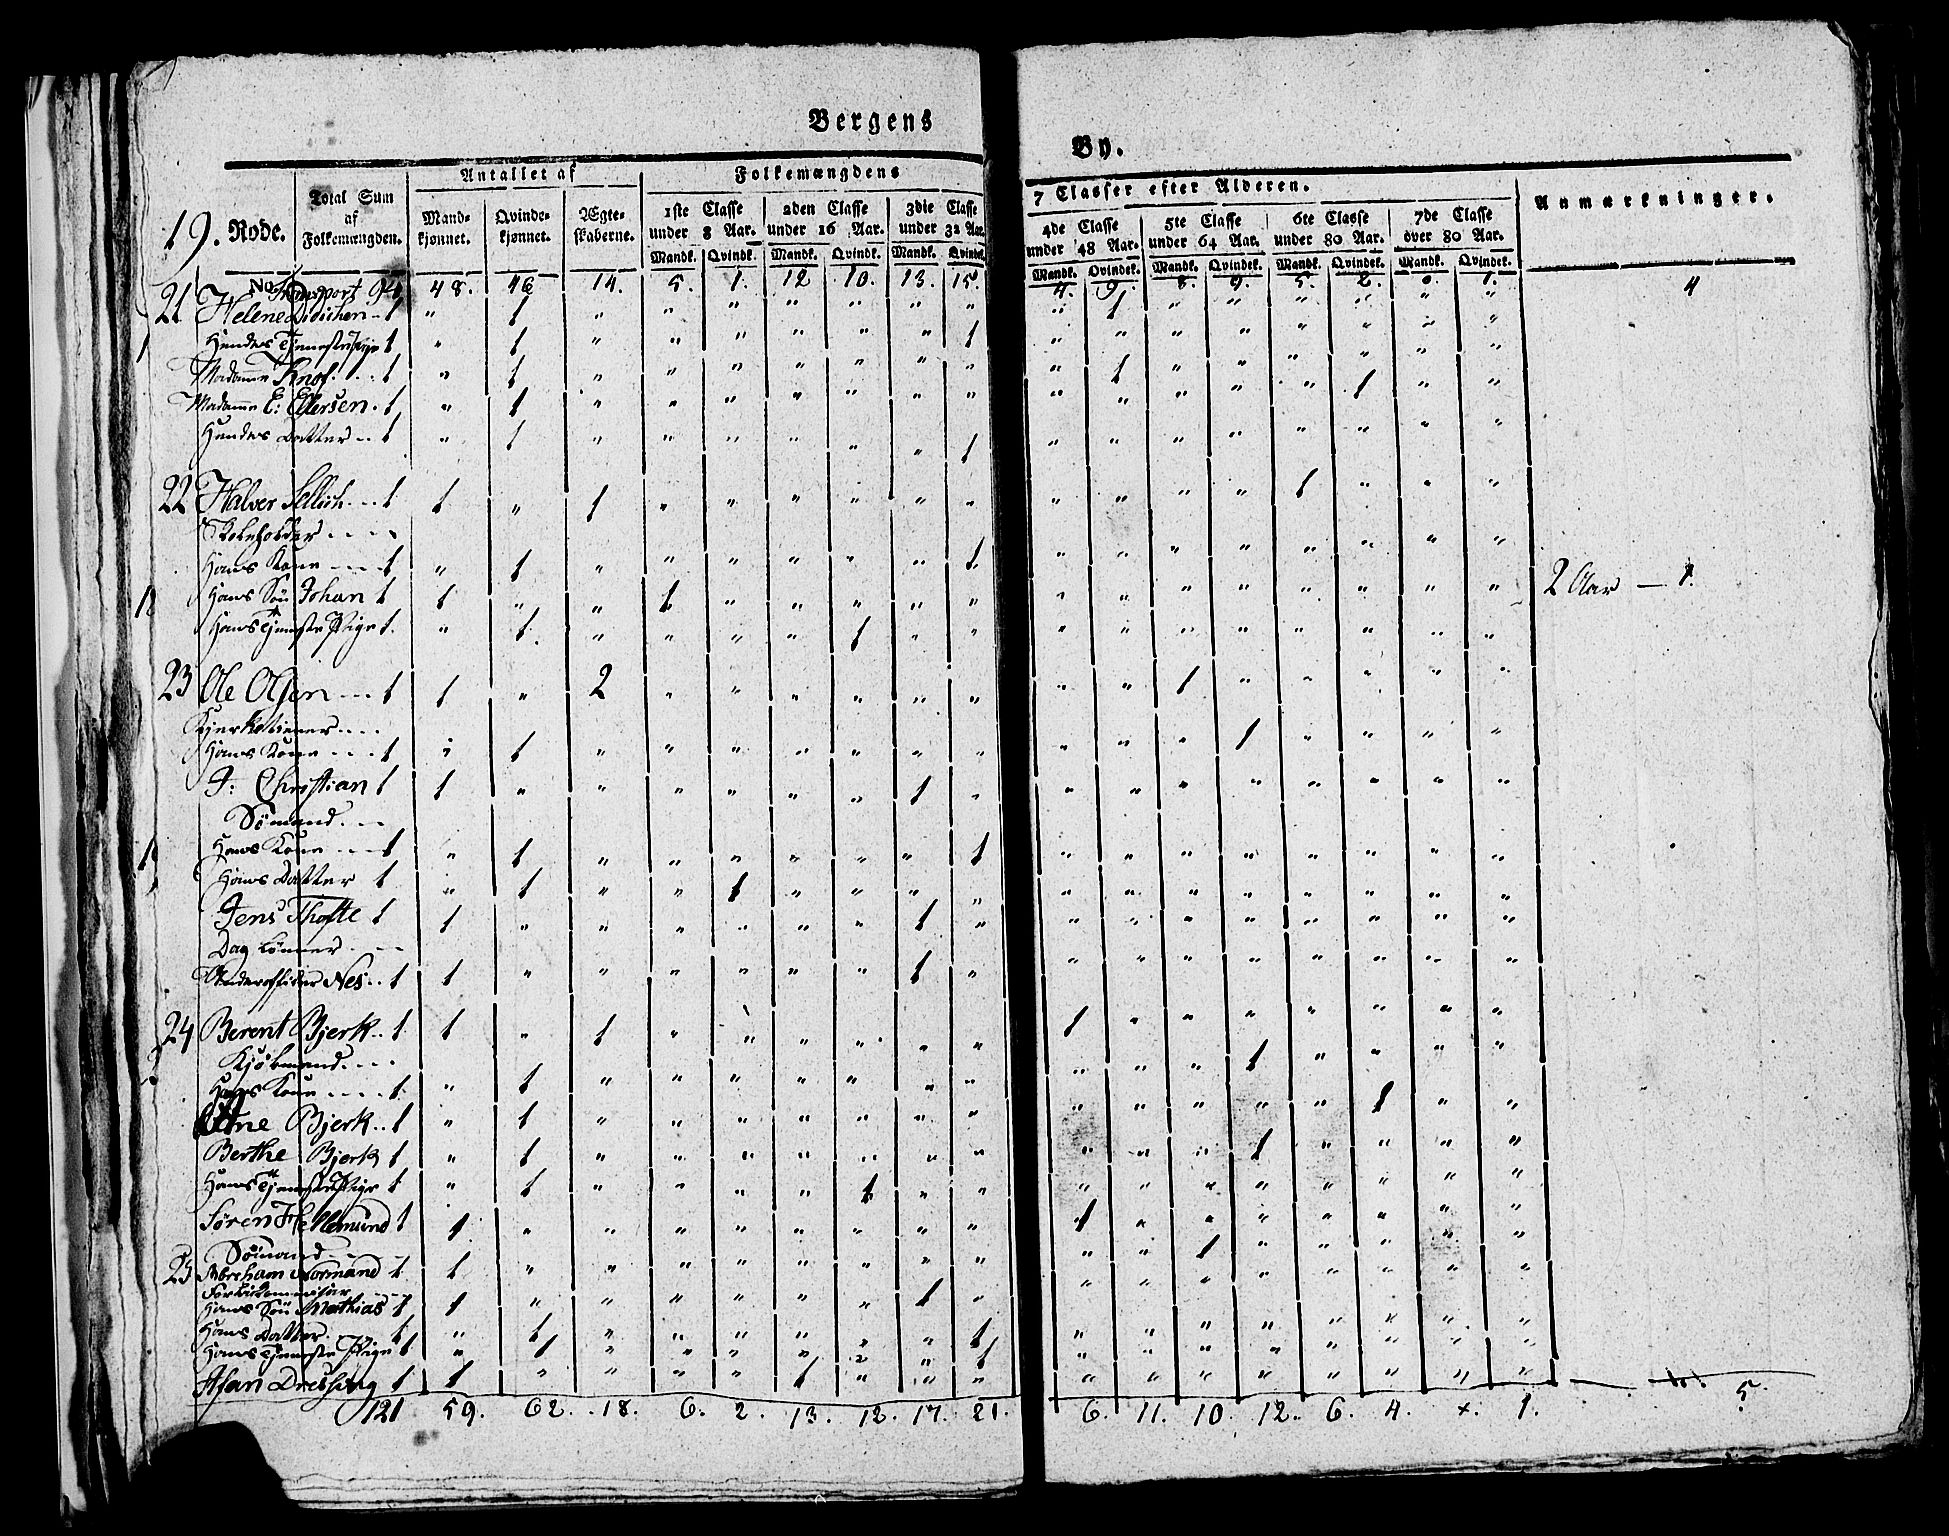 Bergens
By.
Antallet af
Folkemængdens
7 Classer efter Alderen.
Anmærkninger.
19. Rode.
Total Sum af Folkemængden.
Mand-kjønnet.
Qvinde-kjønnet.
Ægte-skaberne.
1ste Classe under 8 Aar.
2den Classe under 16 Aar.
3die Classe under 32 Aar.
4de Classe under 48 Aar.
5te Classe under 64 Aar.
6te Classe under 80 Aar.
7de Classe over 80 Aar.
Mandk. Qvindk. Mandk. Qvindk. Mandk. Qvindek. Mandk. Qvindek. Mandk. Qvindek. Mandk. Qvindek. Mandk. Qvindek.
No. Transport 94 48. 46 14. 5. 1. 12 10. 13. 15. 4. 9. 8. 9. 5. 2. " 1. 4
21 Helene Didichen 1 " 1 " " " " " " " " 1 " " " " " "
Hendes Tjenestepige 1 " 1 " " " " " " 1 " " " " " " " "
Madamme Knof 1 " 1 " " " " " " " " 1 " " " " " "
Madamme E: Ellersen 1 " 1 " " " " " " " " " " " " 1 " "
Hendes Datter 1 " 1 " " " " " " 1 " " " " " " " "
22 Halver Sellich 1 1 " 1 " " " " " " " " " " 1 " " "
Hans Kone 1 " 1 " " " " " " 1 " " " " " " " "
Hans Søn Johan 1 1 " " 1 " " " " " " " " " " " " " 2 Aar — 1.
Hans Tjeneste Pige 1. " 1. " " " " 1 " " " " " " " " " "
23 Ole Olsen 1 1 " 2 " " " " " " " " 1 " " " " "
Hans Kone 1 " 1 " " " " " " " " " " 1 " " " "
J: Christian 1 1 " " " " " " 1 " " " " " " " " "
Sömand
Hans Kone 1 " 1 " " " " " " 1 " " " " " " " "
Hans Datter 1 " 1 " " 1 " " " " " " " " " " " "
Jens Thofte 1 1 " " " " " " 1 " " " " " " " " "
Dag Lönner
Underofficer Nes 1 1 " " " " " " 1 " " " " " " " " "
24 Berent Bjerk 1 1 " 1 " " " " " " 1 " " " " " " "
Kjöbmand
Hans Kone 1 " 1 " " " " " " " " " " 1 " " " "
Bjerk 1 " 1 " " " " " " " " " " " " 1 " "
Berthe Bjerk 1 " 1 " " " " " " " " " " 1 " " " "
Hans Tjeneste Pige 1 " 1 " " " " 1 " " " " " " " " " "
Søren Hellemund 1 1 " " " " " " " " 1 " " " " " " "
Sömand
25 Abraham Normand 1 1 " " " " " " " " " " 1 " " " " "
Hans Søn Mathias 1 1 " " " " " " 1 " " " " " " " " "
Hans Datter 1 " 1 " " " " " " 1 " " " " " " " "
Hans Tjeneste Pige 1 " 1 " " " " " " 1 " " " " " " " "
Dressing 1 1 " " " " 1 " " " " " " " " " " "
121 59. 62. 18. 6. 2. 13. 12. 17. 21. 6. 11. 10 12. 6. 4. x. 1. 5.